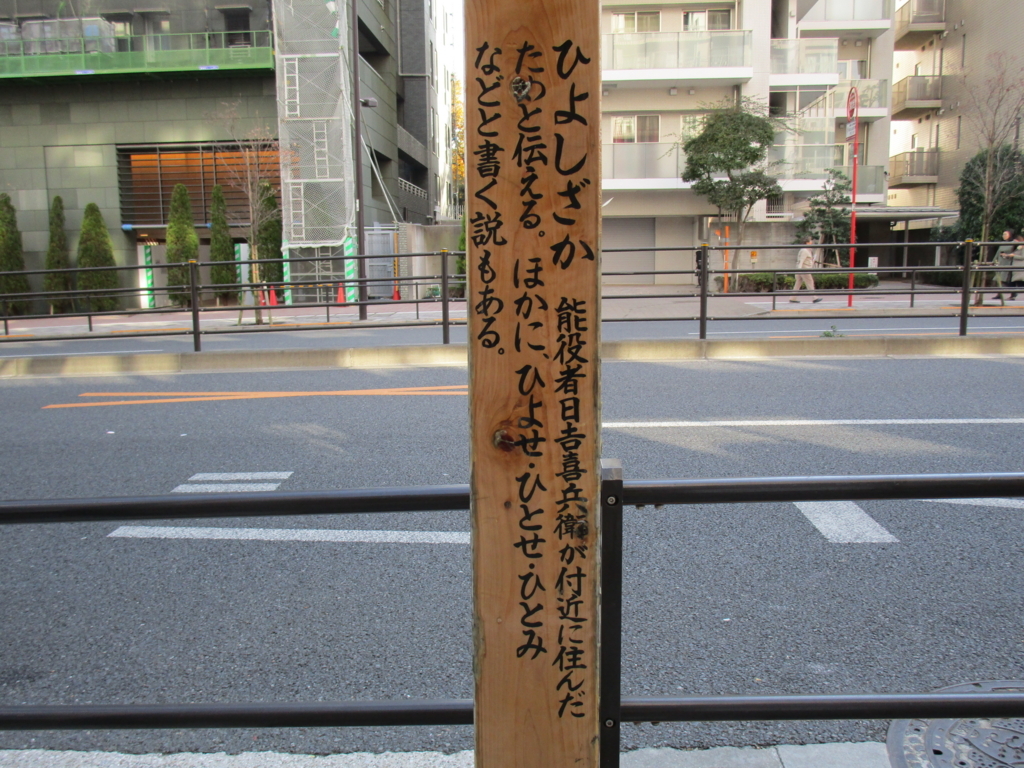 ひよしざか 能役者日吉喜兵衛が付近に住んだ
ためと伝える。ほかに、ひよせ・ひとせ・ひとみ
などと書く説もある。